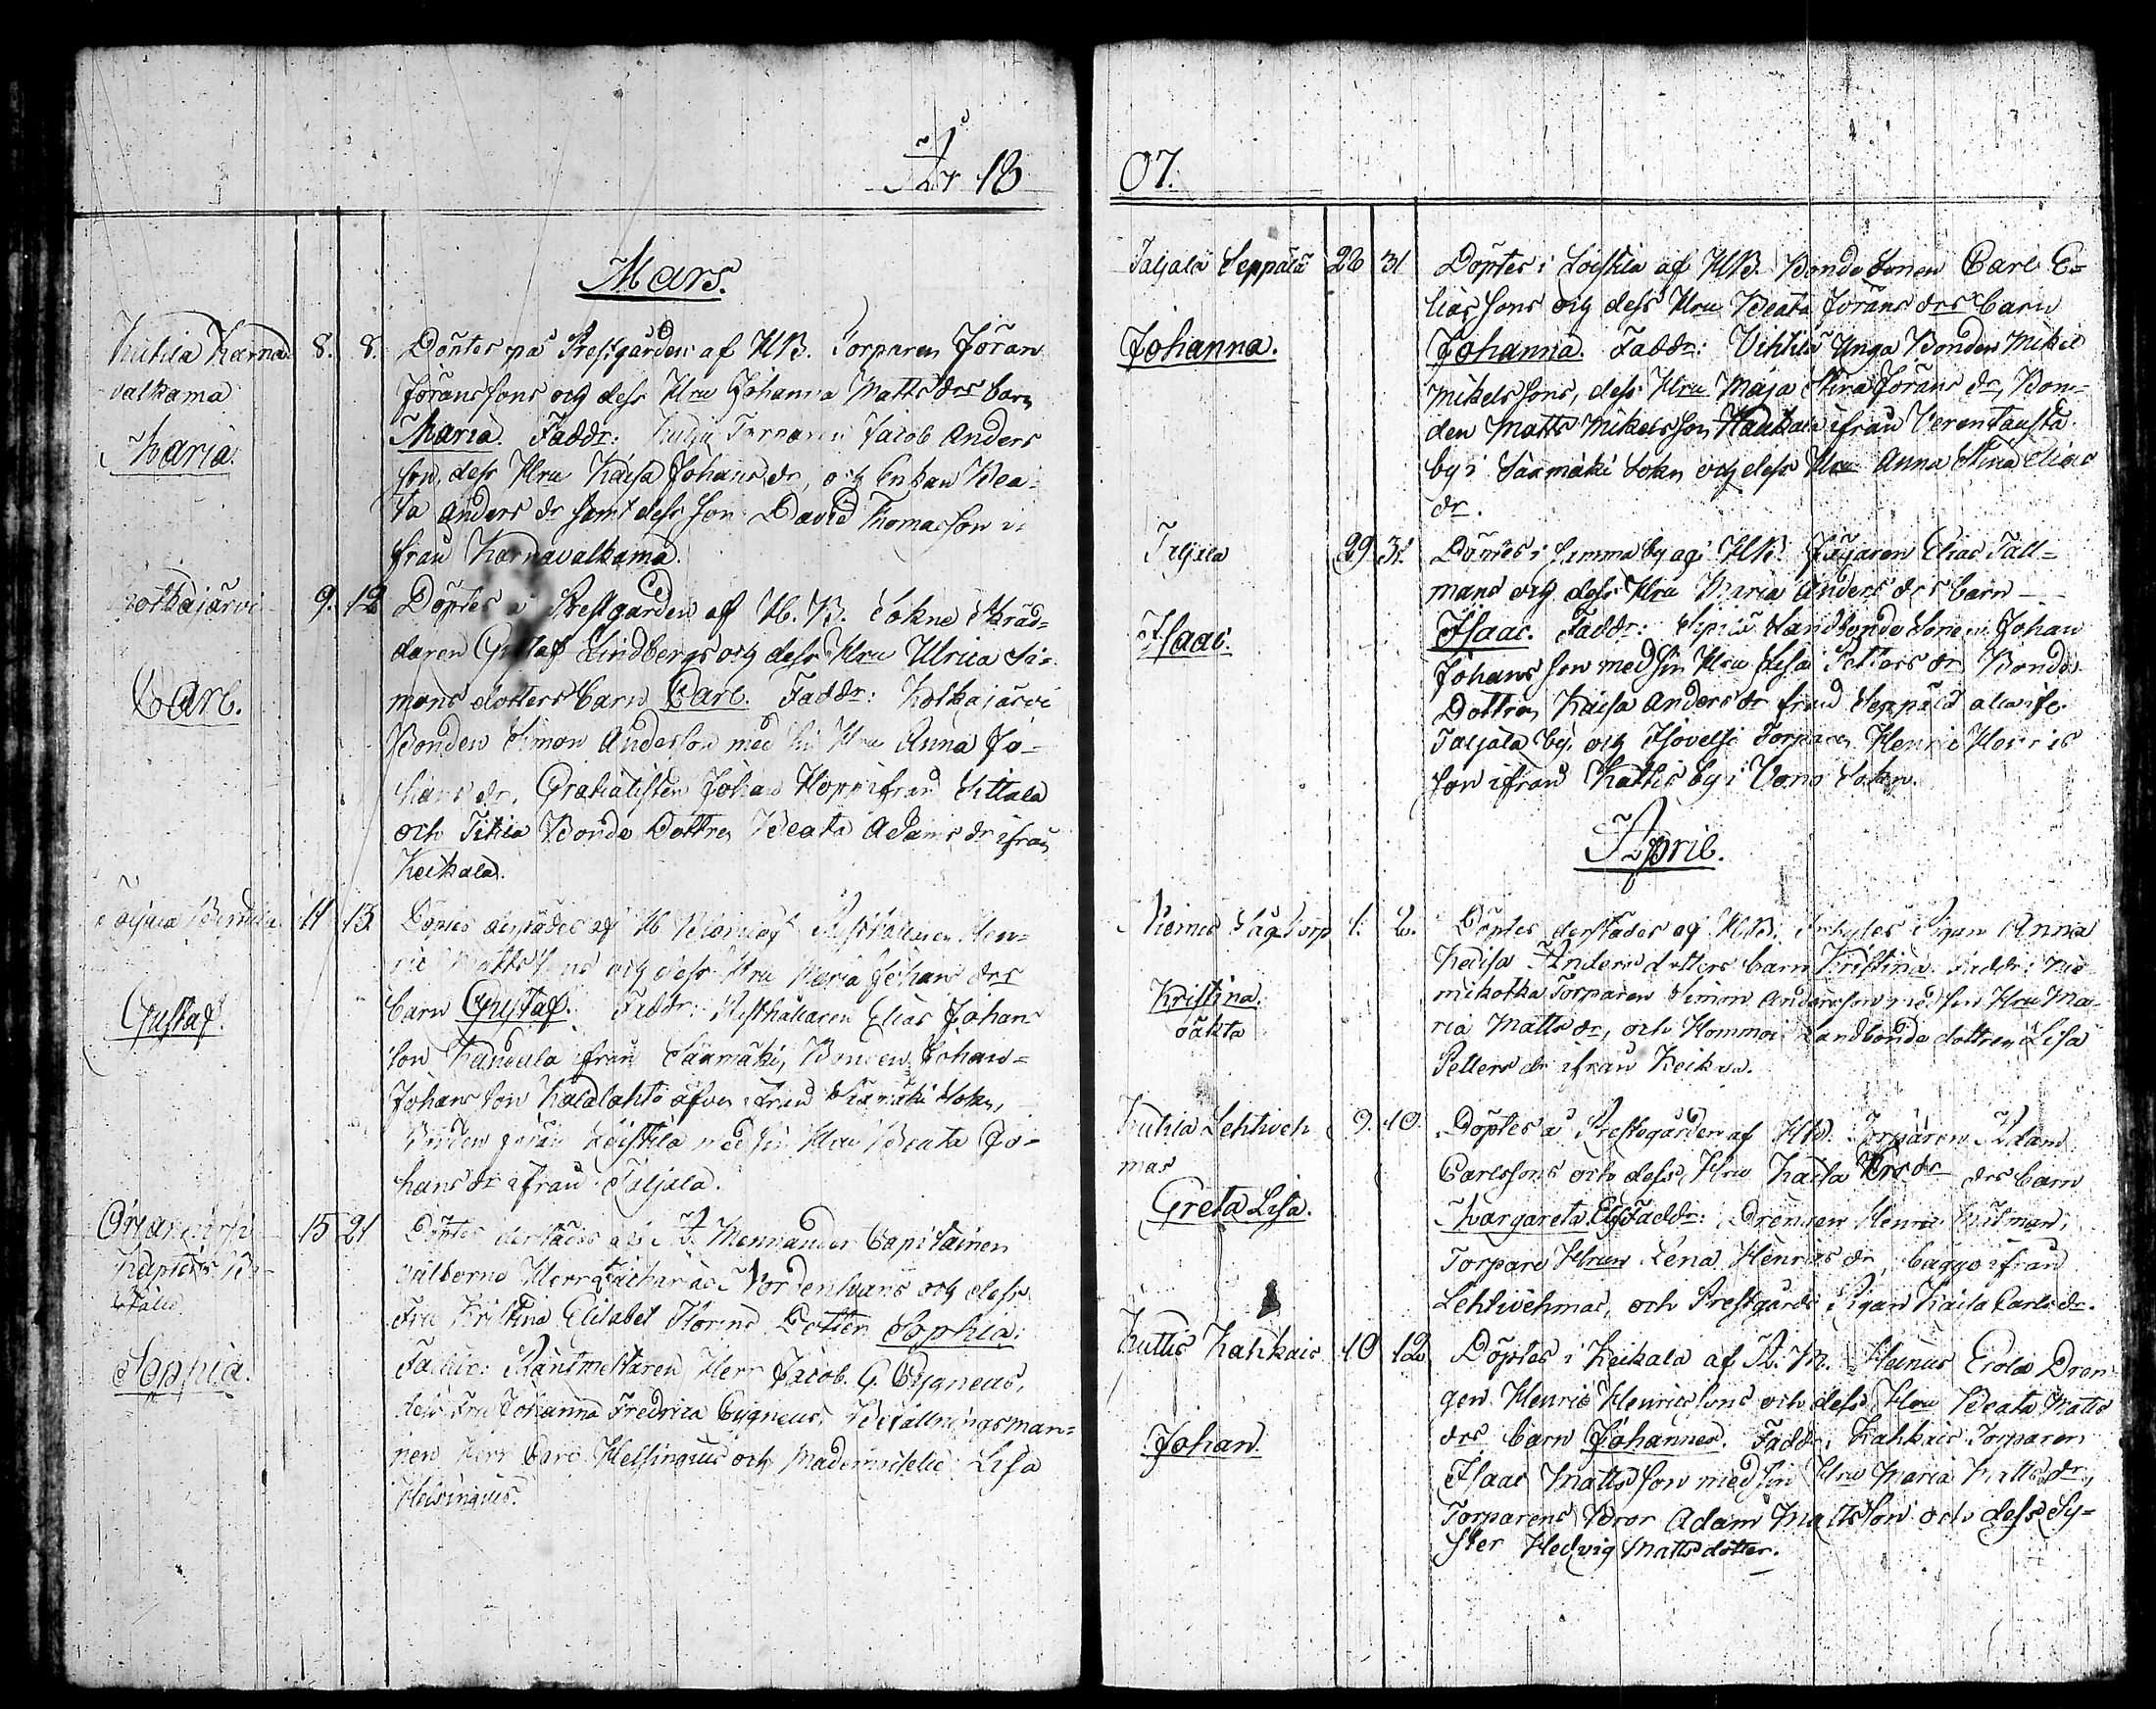 År 18
Mars.
Kutila Karna
valkama
Maria.
8. 8.
Döptes på Prestgården af HB. Torparen Jöran
Jöranssons och dess Hru Johanna Matts drs barn
Maria. Faddr: Torparen Jacob Anders
son, dess Hru Kaisa Johans dr, och Enkan Bea-
ta Anders dr samt dess son David Thomasson i-
från Karnavalkama.
Kotkajärvi
Carl.
9. 12
Döptes å Prestgården af H. B. Sokne Skräd-
daren Gustaf Lindbergs och dess Hru Ulrica Si-
mons dotters barn Carl. Faddr: Kotkajärvi
Bonden Simon Andersson med sin Hru Anna Jo-
hans dr, Gratialisten Johan Hopp ifrån Sittala
och Titila Bonde Dottren Beata Adams dr ifrån
Keikala.
Gustaf.
11 13.
Döptes derstädes af H Rusthållaren Hen-
ric Mattssons och dess Hru Maria Johans drs
barn Gustaf. Faddr: Rusthållaren Elias Johans
son från Säxmäki, Bonden Johan
Johansson Kaldlahti äfven från Säxmäki Sokn,
Bonden Jöran Loistila med sin Hru Beata Jo-
hans dr ifrån Taljala.
Kapteins Bo-
ställe.
Sophia.
15 21
Döptes derstädes af A. Mennander Capitainen
Välborne Herr Zacharias Nordensvans och dess
Fru Kristina Elisabet Horns Dotter Sophia.
Faddr: Räntmestaren Herr Jacob G. Cygneus,
dess Fru Johanna Fredrica Cygneus, Befallningsman-
nen Herr Carl Helsingius och Mademoiselle Lisa
Helsingius.
07.
Taljala Seppälä
Johanna.
26 31
Döptes i Loistila af HB. Bonde Sonen Carl E-
lias sons och dess Hru Beata Jörans drs barn
Johanna. Faddr: Vihtilä Unga Bonden Mikel
Mikelssons, dess Hru Maja Stina Jörans dr, Bon-
den Matts Mikelsson ifrån Verentausta
by i Säxmäki Sokn och dess Hru Anna Stina Elias
dr.
Taljala
Isaac.
29 31.
Döptes i by af HB. Jägaren Elias Tall-
mans och dess Hru Maria Anders drs barn
Isaac. Faddr: Landbonde Sonen Johan
Johans son med sin Hru Lisa Petters dr Bonde
Dottren Kaisa Anders dr från Seppälä allt ifr.
Taljala by, och Torparen Henric Henrics
son ifrån Kattis by i Vånå Sokn.
April.
Niemis Torp
Kristina.
oäkta
1. 2.
Döptes derstädes af HB. Pigan Anna
Kaisa Anders dotters barn Kristina. Faddr: Nie-
mikotka Torparen Simon Andersson med sin Hru Ma-
ria Matts dr, och Hommoi Landbonde dottren Lisa
Petters dr ifrån Keikala.
Kutila Lehtiveh
mas
Greta Lisa.
9. 10.
Döptes å Prestegården af HB. Torparen Adam
Carlssons och dess Hru Kaisa drs barn
Margareta Faddr: Drengen Henric
Torpare Hrun Lena Henrics dr, bägge ifrån
Lehtivehmas, och Prestgårds Pigan Kaisa Carls dr.
Kuttis Kahkais
Johan
10 12
Döptes i Keikala af A. M. Eola Dren-
gen Henric Henricssons och dess Hru Beata Matts
drs barn Johannes. Faddr: Kahkais Torparen
Isaac Mattsson med sin Hru Maria Matts dr,
Torparens Bror Adam Mattsson och dess Sy-
ster Hedvig Matts dotter.